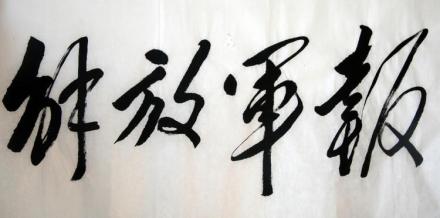 解放軍報